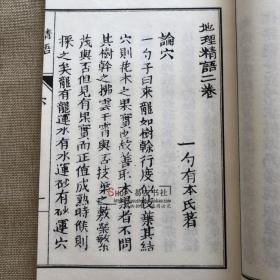 地理精語二卷
一勺有本氏著
論穴
一勺子曰來龍如樹幹行度如枝葉其結
穴則花木之果實也故善取 果者不問
其樹幹之拂雲干霄與否 之敷榮繁
茂與否但見有果實而正值成熟時候則
採之矣龍有龍運水有水運砂有砂運穴
精語
六